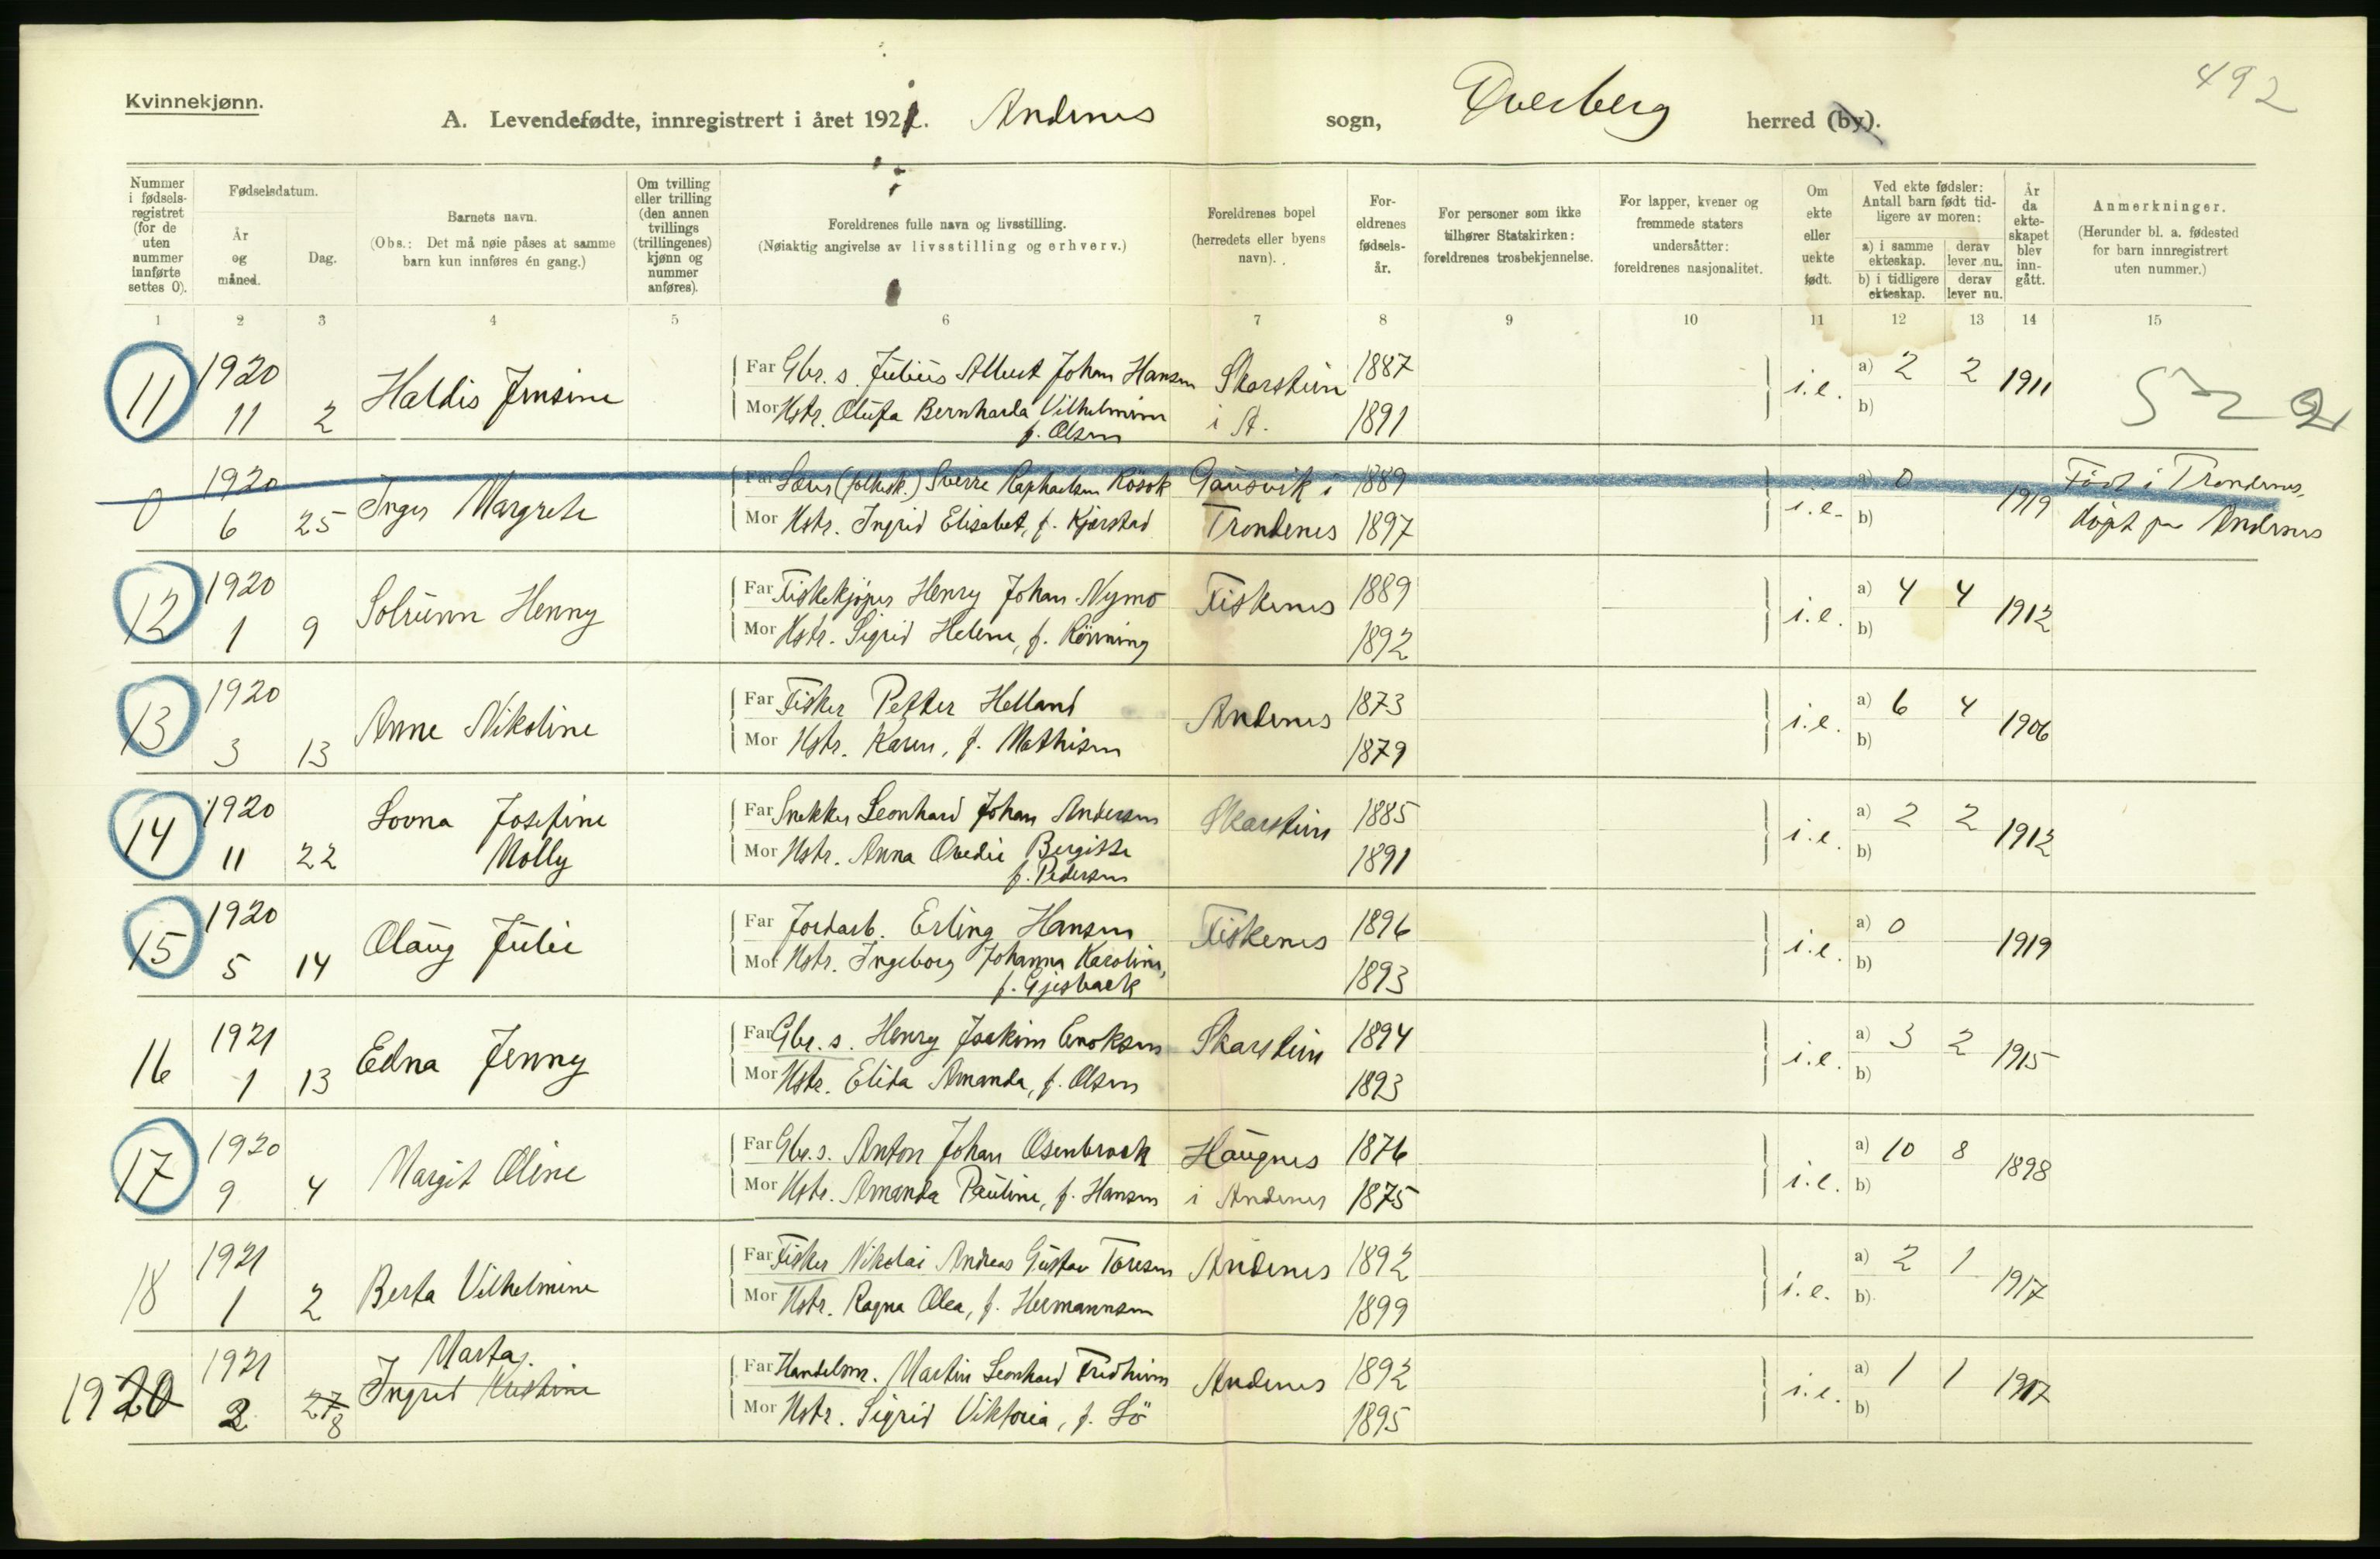 492
Kvinnekjønn.
A. Levendefødte, innregistrert i året 1921. Andenes sogn, Dverberg herred (by).
Nummer i fødselsregistret (for de uten nummer innførte settes 0).
Fødselsdatum.
År og måned.
Dag.
Barnets navn.
(Obs.: Det må nøie påses at samme barn kun innføres én gang.)
Om tvilling eller trilling (den annen tvillings (trillingenes) kjønn og nummer anføres).
Foreldrenes fulle navn og livsstilling.
(Nøiaktig angivelse av livsstilling og erhverv.)
Foreldrenes bopel (herredets eller byens navn).
Foreldrenes fødselsår.
For personer som ikke tilhører Statskirken: foreldrenes trosbekjennelse.
For lapper, kvener og fremmede staters undersåtter: foreldrenes nasjonalitet.
Om ekte eller uekte født.
Ved ekte fødsler: Antall barn født tidligere av moren:
a) i samme ekteskap. derav lever nu.
b) i tidligere ekteskap. derav lever nu.
År da ekteskapet blev inngått.
Anmerkninger.
(Herunder bl. a. fødested for barn innregistrert uten nummer.)
1 2 3 4 5 6 7 8 9 10 11 12 13 14 15
11 1920 11 2 Haldis Jensine
Far Gbr. s. Julius Albert Johan Hansen Skarstein 1887 i.e. a) 2 2 1911
Mor Hstr. Olufa Bernharda Vilhelmine f. Olsen i A. 1891 b)
0 1920 6 25 Inger Margrete
Far Lærer (folkesk.) Sverre Raphaelsen Kösok Gausvik i 1889 i.e. a) 0 1919 Född i Trondenes,
Mor Hstr. Ingrid Elisabet, f. Kjærstad Trondenes 1897 b) döpt paa Andenes
12 1920 1 9 Solrunn Henny
Far Fiskekjöper Henry Johan Nymo Fiskenes 1889 i.e. a) 4 4 1912
Mor Hstr. Sigrid Helene, f. Rönning 1892 b)
13 1920 3 13 Anne Nikoline
Far Fisker Petter Helland Andenes 1873 i.e. a) 6 4 1906
Mor Hstr. Karen, f. Mathisen 1879 b)
14 1920 11 22 Lovna Josefine Molly
Far Snekker Leonhard Johan Andersen Skarstein 1885 i.e. a) 2 2 1912
Mor Hstr. Anna Ovedie Bergitte f. Pedersen 1891 b)
15 1920 5 14 Olaug Julie
Far Jordarb. Erling Hansen Fiskenes 1896 i.e. a) 0 1919
Mor Hstr. Ingeborg Johanna Karoline, f. Gjesback 1893 b)
16 1921 1 13 Edna Jenny
Far Gbr. s. Henry Joakim Enoksen Skarstein 1894 i.e. a) 3 2 1915
Mor Hstr. Elida Amanda, f. Olsen 1893 b)
17 1920 9 4 Margit Oline
Far Gbr. s. Anton Johan Osenbrock Haugnes 1876 i.e. a) 10 8 1898
Mor Hstr. Amanda Pauline, f. Hansen i Andenes 1875 b)
18 1921 1 2 Berta Vilhelmine
Far Fisker Nikolai Andreas Gustav Toresen Andenes 1892 i.e. a) 2 1 1917
Mor Hstr. Ragna Olea, f. Hermannsen 1899 b)
19 20 1921 2 27 8 Marta
Ingrid Kristine
Far Handelsm. Martin Leonhard Fredheim Andenes 1892 i.e. a) 1 1 1917
Mor Hstr. Sigrid Viktoria, f. Lö 1895 b)